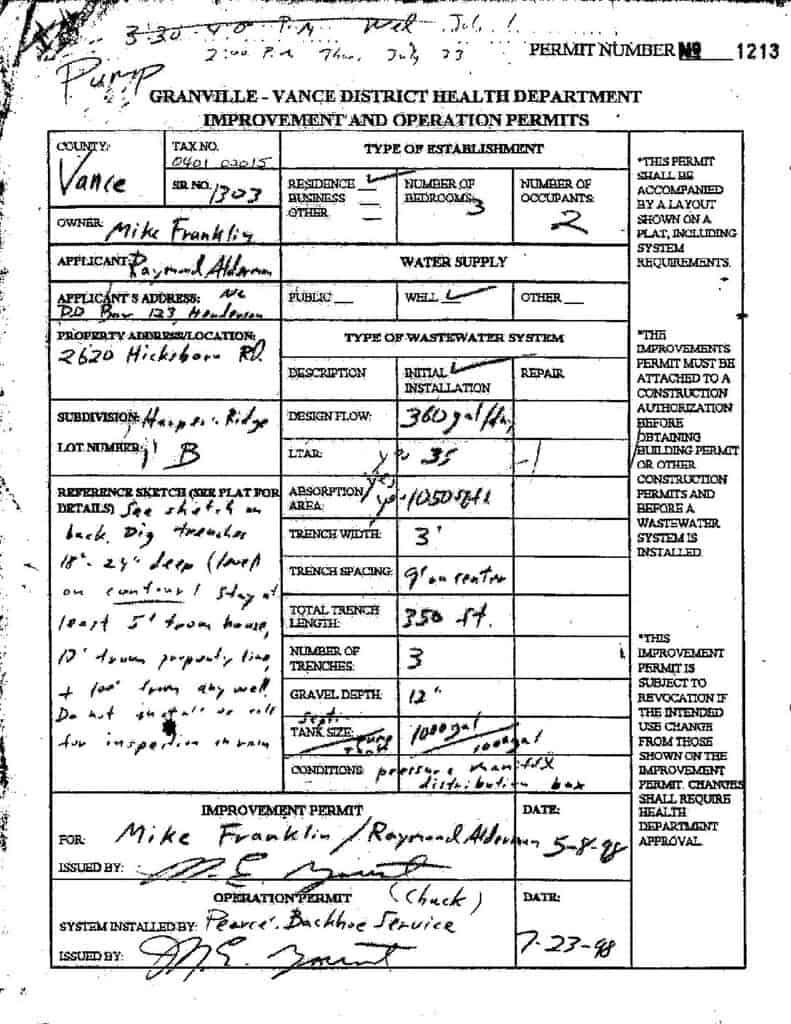 3:30 4:00 P.M. Wed July 1
2:00 P.M Thur July 23
PERMIT NUMBER No 1213
Pump
GRANVILLE - VANCE DISTRICT HEALTH DEPARTMENT
IMPROVEMENT AND OPERATION PERMITS
COUNTY:
Vance
TAX NO.
0401 02015
SIR NO. 1303
OWNER: Mike Franklin
APPLICANT: Raymond Alderman
APPLICANT'S ADDRESS: NC
PO Box 123, Henderson
PROPERTY ADDRESS/LOCATION:
2620 Hicksboro RD.
SUBDIVISION: Harper Ridge
LOT NUMBER: B
REFERENCE SKETCH (SEE PLAT FOR
DETAILS) See sketch on
back. Dig trenches
18"-24" deep (level
on contour) stay at
least 5' from house,
10' from property line,
+ 100' from any well
Do not install or call
for inspection in rain
TYPE OF ESTABLISHMENT
RESIDENCE ✓
BUSINESS
OTHER
NUMBER OF
BEDROOMS: 3
NUMBER OF
OCCUPANTS:
2
WATER SUPPLY
PUBLIC
WELL ✓
OTHER
TYPE OF WASTEWATER SYSTEM
DESCRIPTION
INITIAL ✓
INSTALLATION
REPAIR
DESIGN FLOW: 360 gal/day
LTAR: 35
ABSORPTION
AREA: 1050 sq ft
TRENCH WIDTH: 3'
TRENCH SPACING: 9' on center
TOTAL TRENCH
LENGTH: 350 ft.
NUMBER OF
TRENCHES: 3
GRAVEL DEPTH: 12"
septic
TANK SIZE: 1000 gal
pump tank 1000 gal
CONDITIONS: pressure manifold
distribution box
*THIS PERMIT
SHALL BE
ACCOMPANIED
BY A LAYOUT
SHOWN ON A
PLAT, INCLUDING
SYSTEM
REQUIREMENTS.
*THE
IMPROVEMENTS
PERMIT MUST BE
ATTACHED TO A
CONSTRUCTION
AUTHORIZATION
BEFORE
OBTAINING
BUILDING PERMIT
OR OTHER
CONSTRUCTION
PERMITS AND
BEFORE A
WASTEWATER
SYSTEM IS
INSTALLED.
*THIS
IMPROVEMENT
PERMIT IS
SUBJECT TO
REVOCATION IF
THE INTENDED
USE CHANGE
FROM THOSE
SHOWN ON THE
IMPROVEMENT
PERMIT. CHANGES
SHALL REQUIRE
HEALTH
DEPARTMENT
APPROVAL.
IMPROVEMENT PERMIT
FOR: Mike Franklin / Raymond Alderman
ISSUED BY:
DATE:
5-8-98
OPERATION PERMIT (Chuck)
SYSTEM INSTALLED BY: Pearce Backhoe Service
ISSUED BY:
DATE:
7-23-98